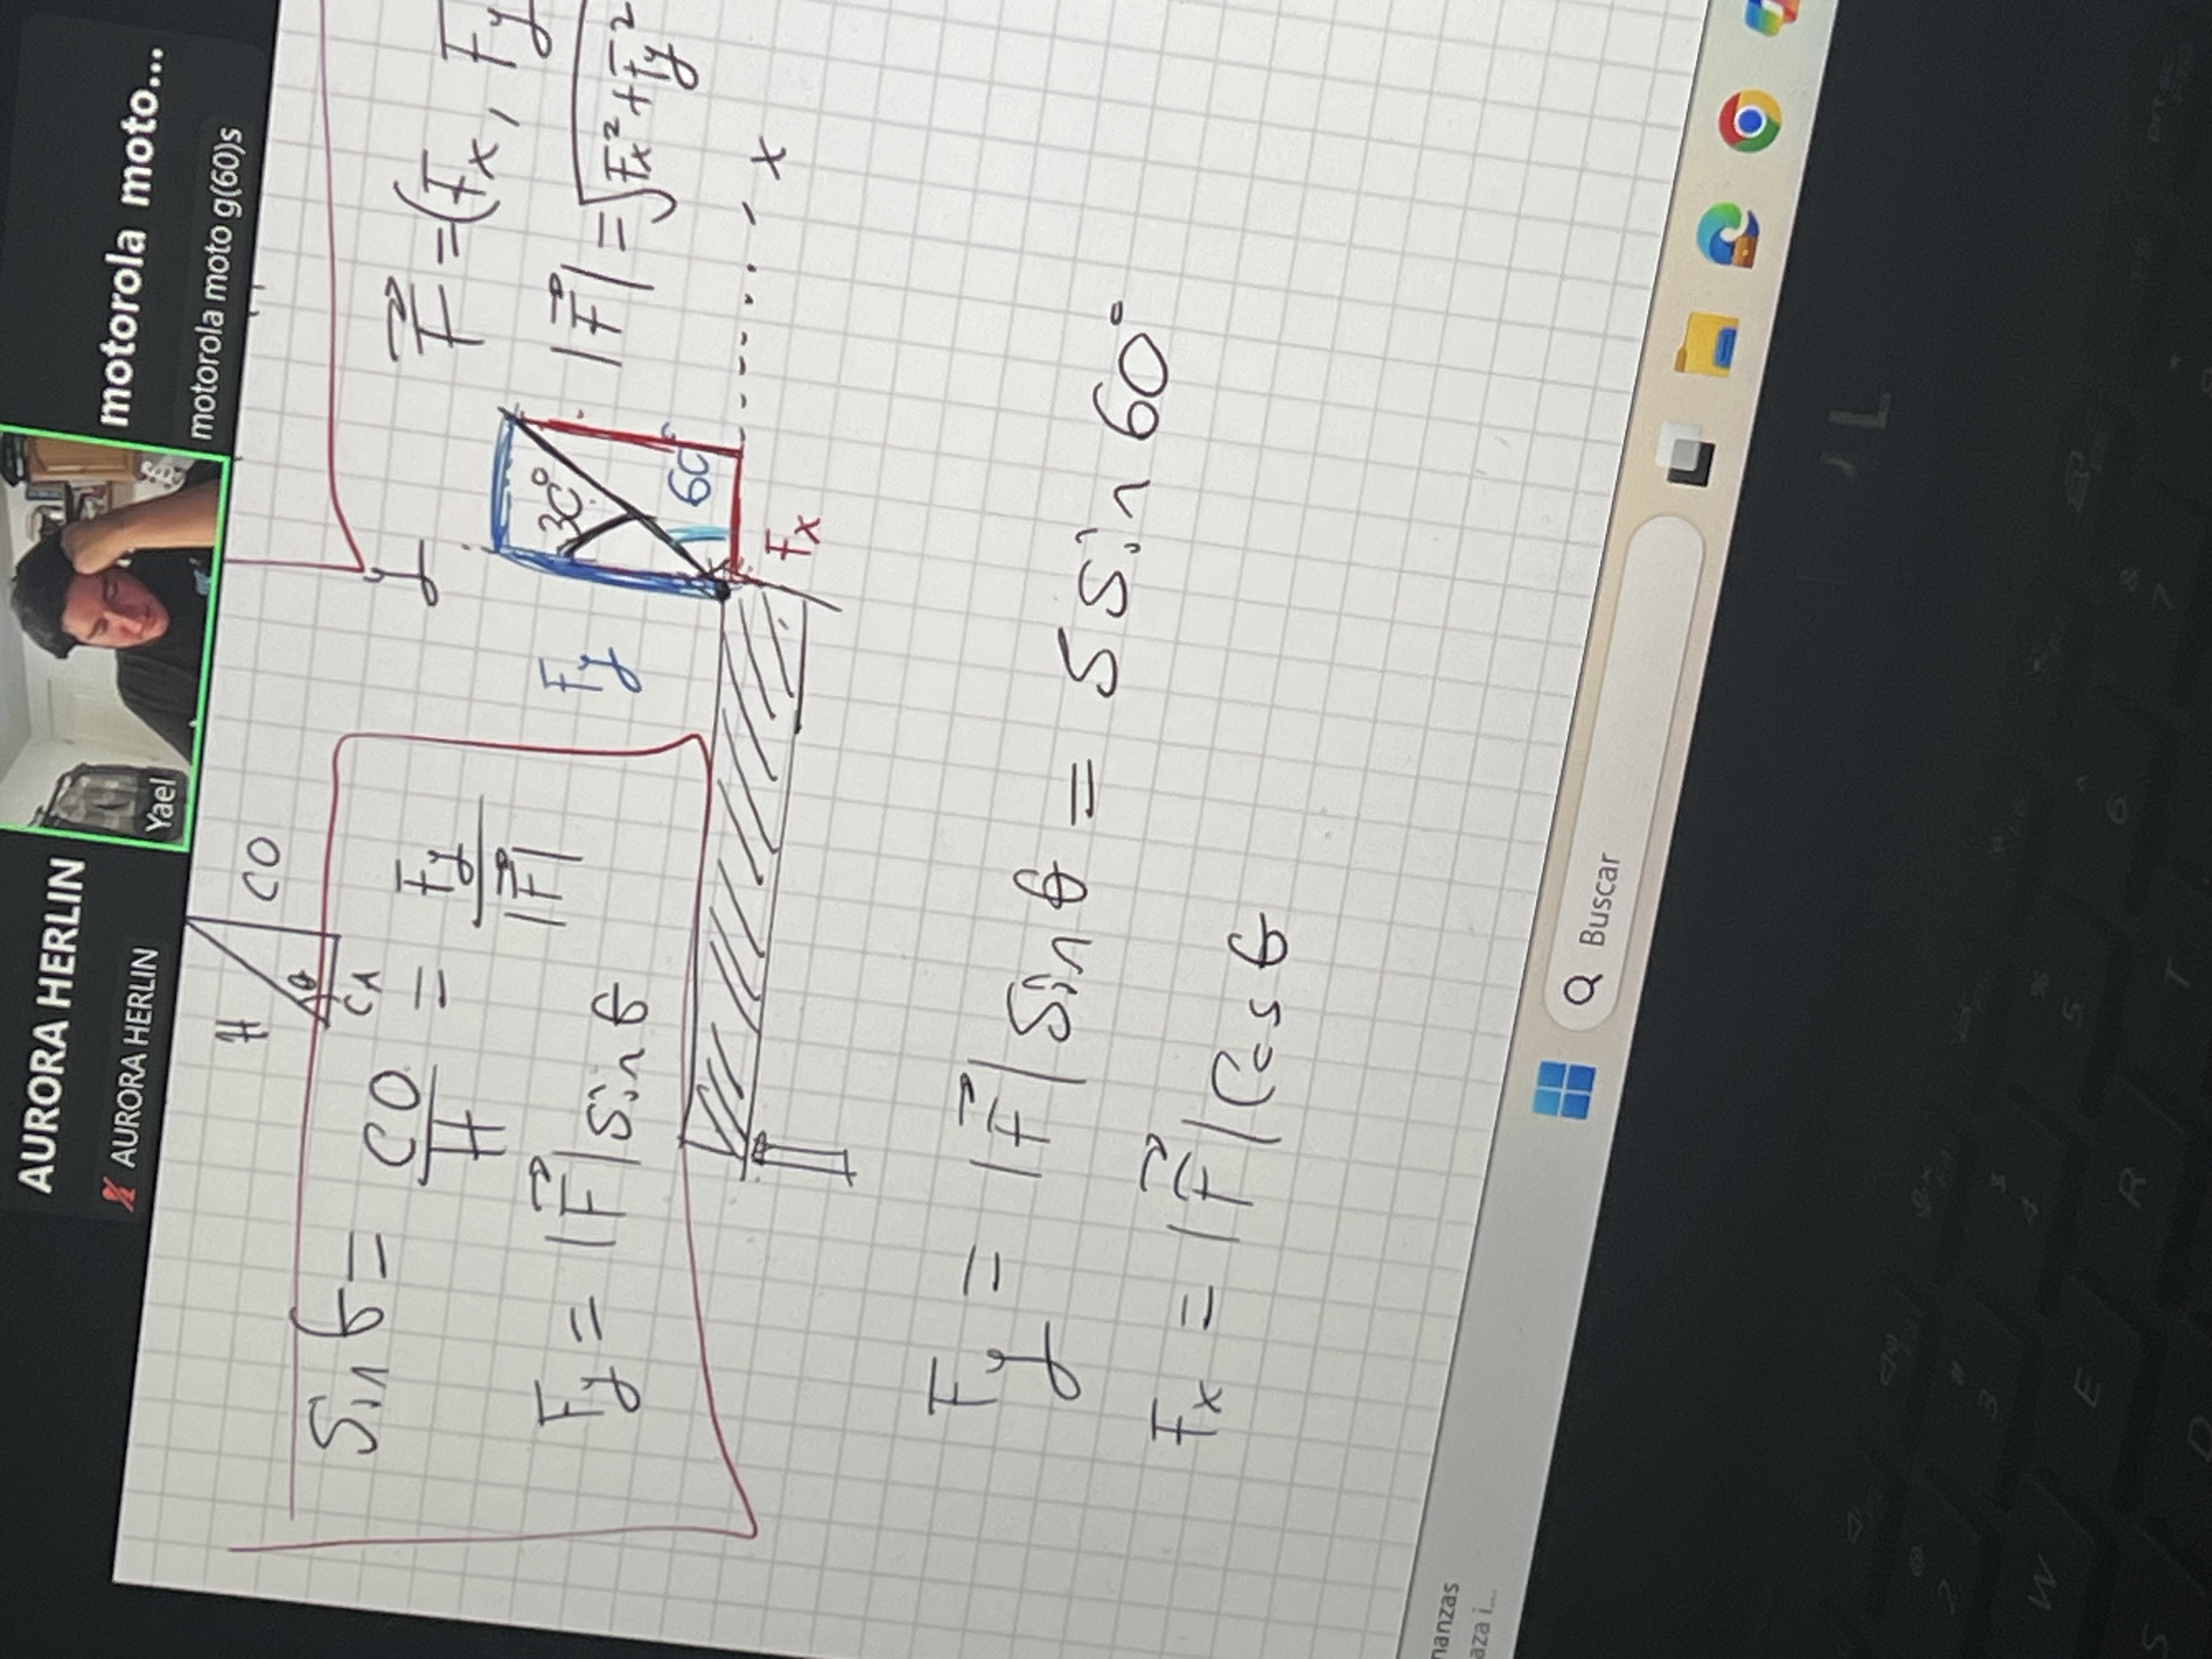 AURORA HERLIN
AURORA HERLIN
Yael
motorola moto...
motorola moto g(60)s
H
CO
θ
CA
Sin θ = CO/H = Fy/|F⃗|
Fy = |F⃗| Sin θ
y
F⃗ = (Fx, Fy
|F⃗| = √Fx² + Fy²
Fy
30°
60
Fx
x
Fy = |F⃗| Sin θ = 5 Sin 60°
Fx = |F⃗| Cos θ
nanzas
aza i...
Buscar
2
3
4
5
6
7
W
E
R
T
S
D